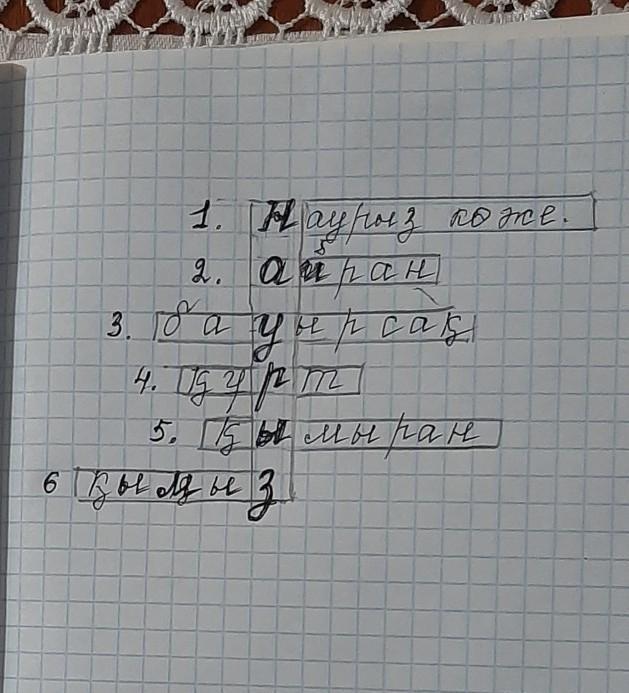 1. Наурыз көже.
2. айран
3. бауырсақ
4. құрт
5. қымыран
6 қымыз